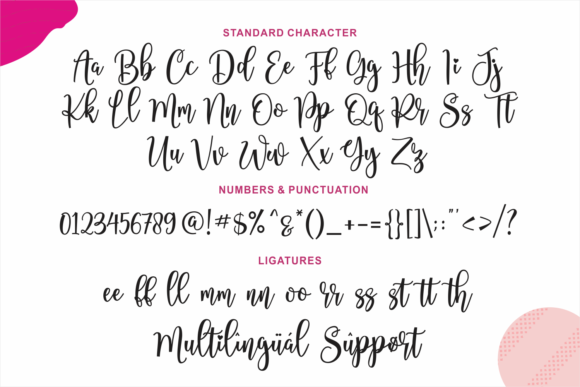 STANDARD CHARACTER
Aa Bb Cc Dd Ee Ff Gg Hh Ii Jj
Kk Ll Mm Nn Oo Pp Qq Rr Ss Tt
Uu Vv Ww Xx Yy Zz
NUMBERS & PUNCTUATION
0123456789@!#$%^&*()_+-={}[]\;:"'<>/?
LIGATURES
ee ff ll mm nn oo rr ss st tt th
Multilîngüál Sûppørt